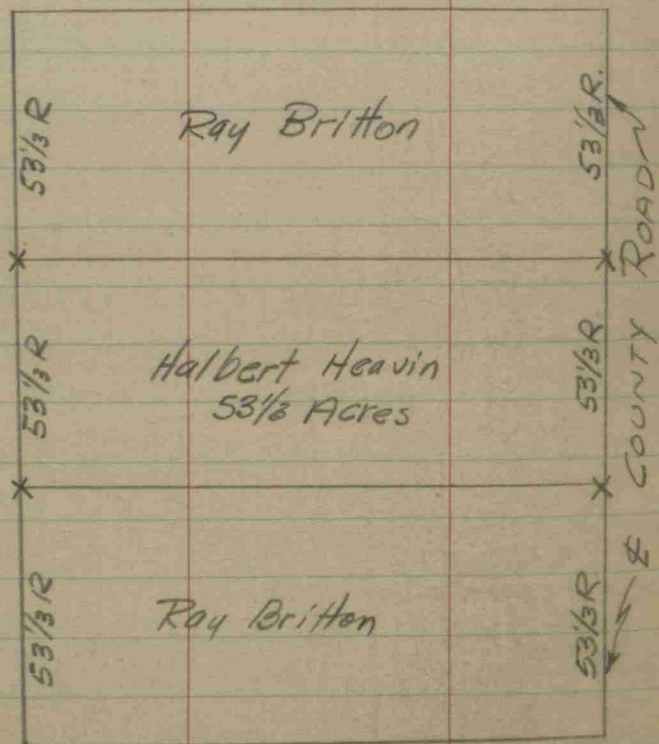 53 1/3 R
Ray Britton
53 1/3 R.
53 1/3 R
Halbert Heavin
53 1/3 Acres
53 1/3 R
53 1/3 R
Ray Britton
53 1/3 R
℄ COUNTY ROAD